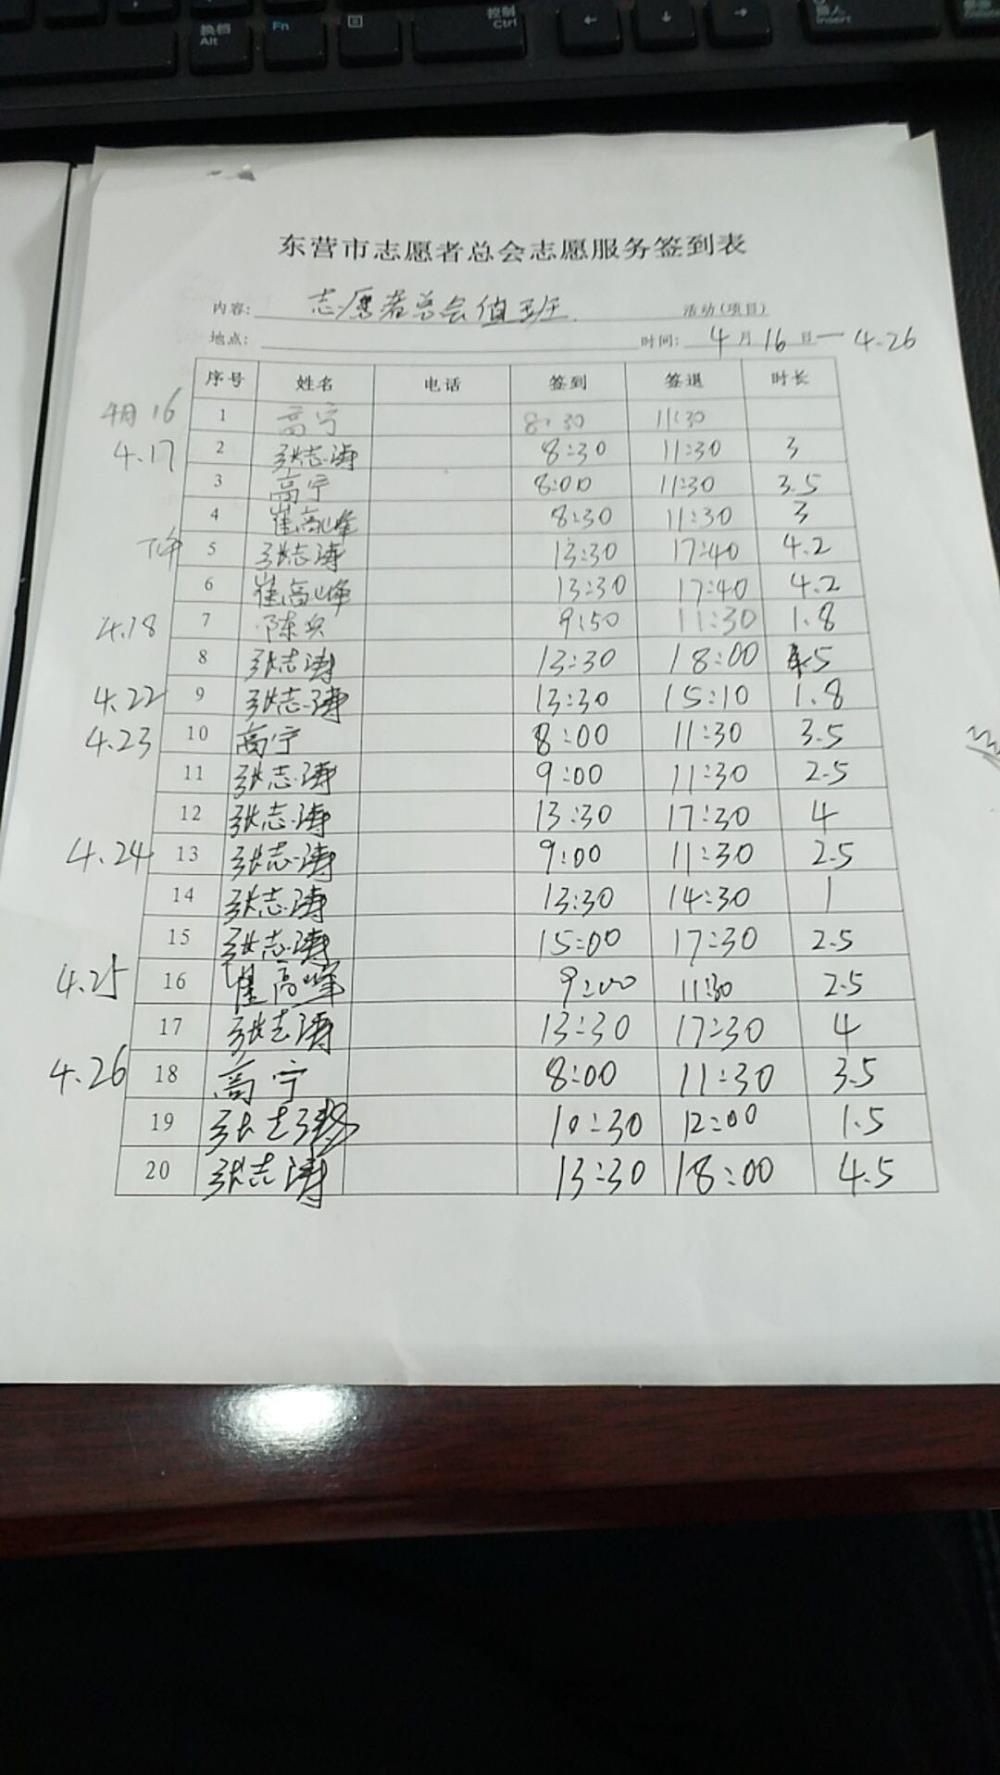 换档
Alt
Fn
控制
Ctrl
←
↓
→
插入
Insert
东营市志愿者总会志愿服务签到表
内容: 志愿者总会值班 活动(项目)
地点: 时间: 4月16日—4.26
序号 姓名 电话 签到 签退 时长
4月16 1 高宁 8:30 11:30
4.17 2 张志涛 8:30 11:30 3
3 高宁 8:00 11:30 3.5
4 崔高峰 8:30 11:30 3
下午 5 张志涛 13:30 17:40 4.2
6 崔高峰 13:30 17:40 4.2
4.18 7 陈兵 9:50 11:30 1.8
8 张志涛 13:30 18:00 4.5
4.22 9 张志涛 13:30 15:10 1.8
4.23 10 高宁 8:00 11:30 3.5
11 张志涛 9:00 11:30 2.5
12 张志涛 13:30 17:30 4
4.24 13 张志涛 9:00 11:30 2.5
14 张志涛 13:30 14:30 1
15 张志涛 15:00 17:30 2.5
4.25 16 崔高峰 9:00 11:30 2.5
17 张志涛 13:30 17:30 4
4.26 18 高宁 8:00 11:30 3.5
19 10:30 12:00 1.5
20 张志涛 13:30 18:00 4.5